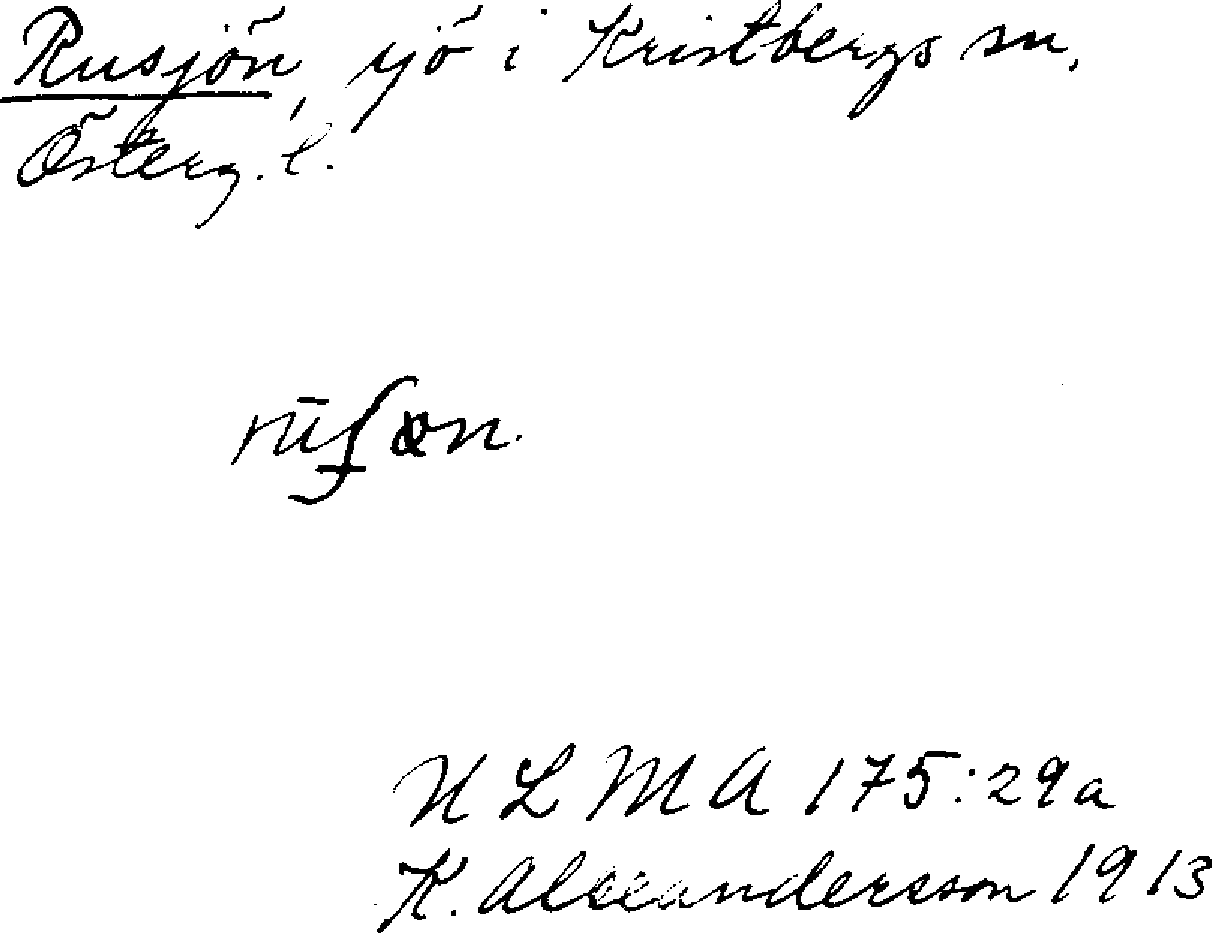 Rusjön, sjö i Kristbergs sn,
Österg. l.
ULMA 175:29a
K. Alexandersson 1913